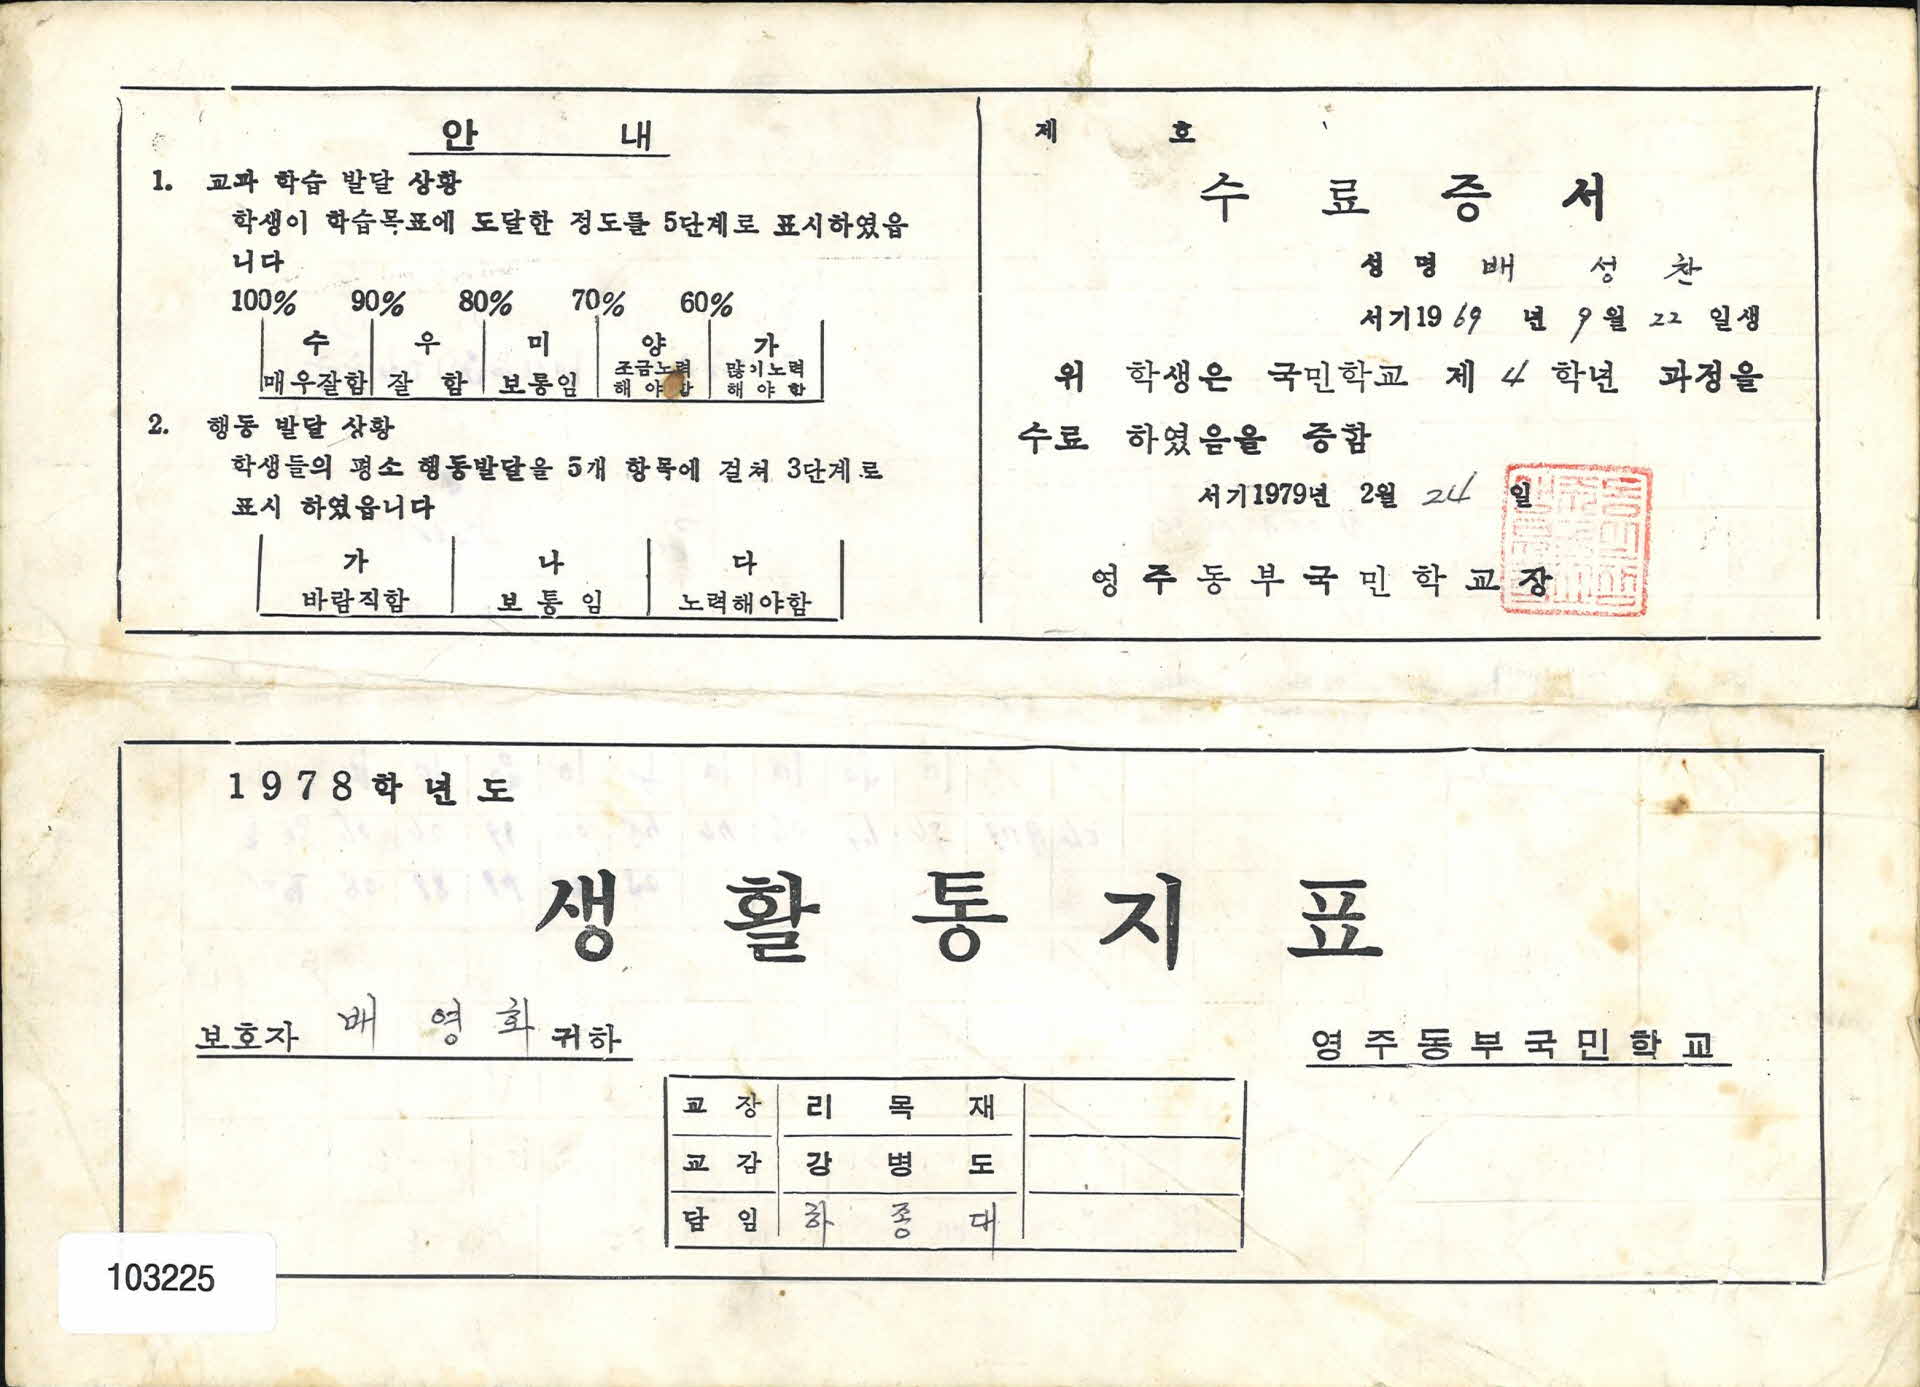 안 내
1. 교과 학습 발달 상황
학생이 학습목표에 도달한 정도를 5단계로 표시하였읍
니다
100% 90% 80% 70% 60%
수 우 미 양 가
매우잘함 잘 함 보통임 조금노력 해 야 함 많이노력 해 야 함
2. 행동 발달 상황
학생들의 평소 행동발달을 5개 항목에 걸쳐 3단계로
표시 하였읍니다
가 나 다
바람직함 보 통 임 노력해야함
제 호
수 료 증 서
성 명 배 성 찬
서기1969 년 9월 22 일생
위 학생은 국민학교 제 4 학년 과정을
수료 하였음을 증함
서기1979년 2월 24 일
영 주 동 부 국 민 학 교 장
1978학년도
생 활 통 지 표
보호자 배 영 화 귀하
영 주 동 부 국 민 학 교
교 장 리 목 재
교 감 강 병 도
담 임 하 종 대
103225